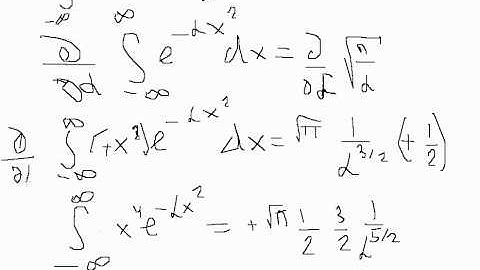 ∂/∂α ∫_{-∞}^{∞} e^{-αx²} dx = ∂/∂α √(π/α)
∂/∂α ∫_{-∞}^{∞} (+x²) e^{-αx²} dx = √π 1/α^{3/2} (+ 1/2)
∫_{-∞}^{∞} x⁴ e^{-αx²} = + √π 1/2 3/2 1/α^{5/2}